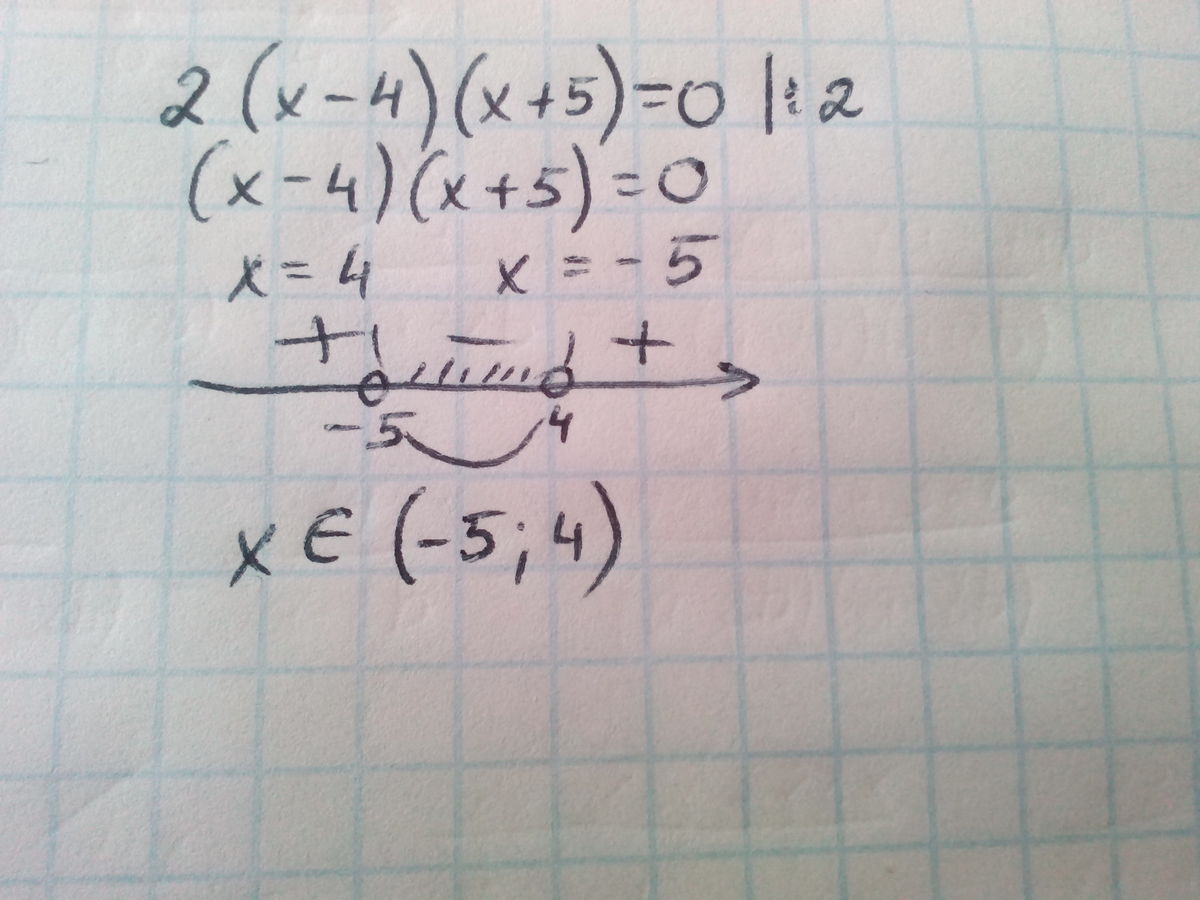 2 (x-4)(x+5)=0 |:2
(x-4)(x+5)=0
x=4 x=-5
+ - +
-5 4
x∈(-5;4)